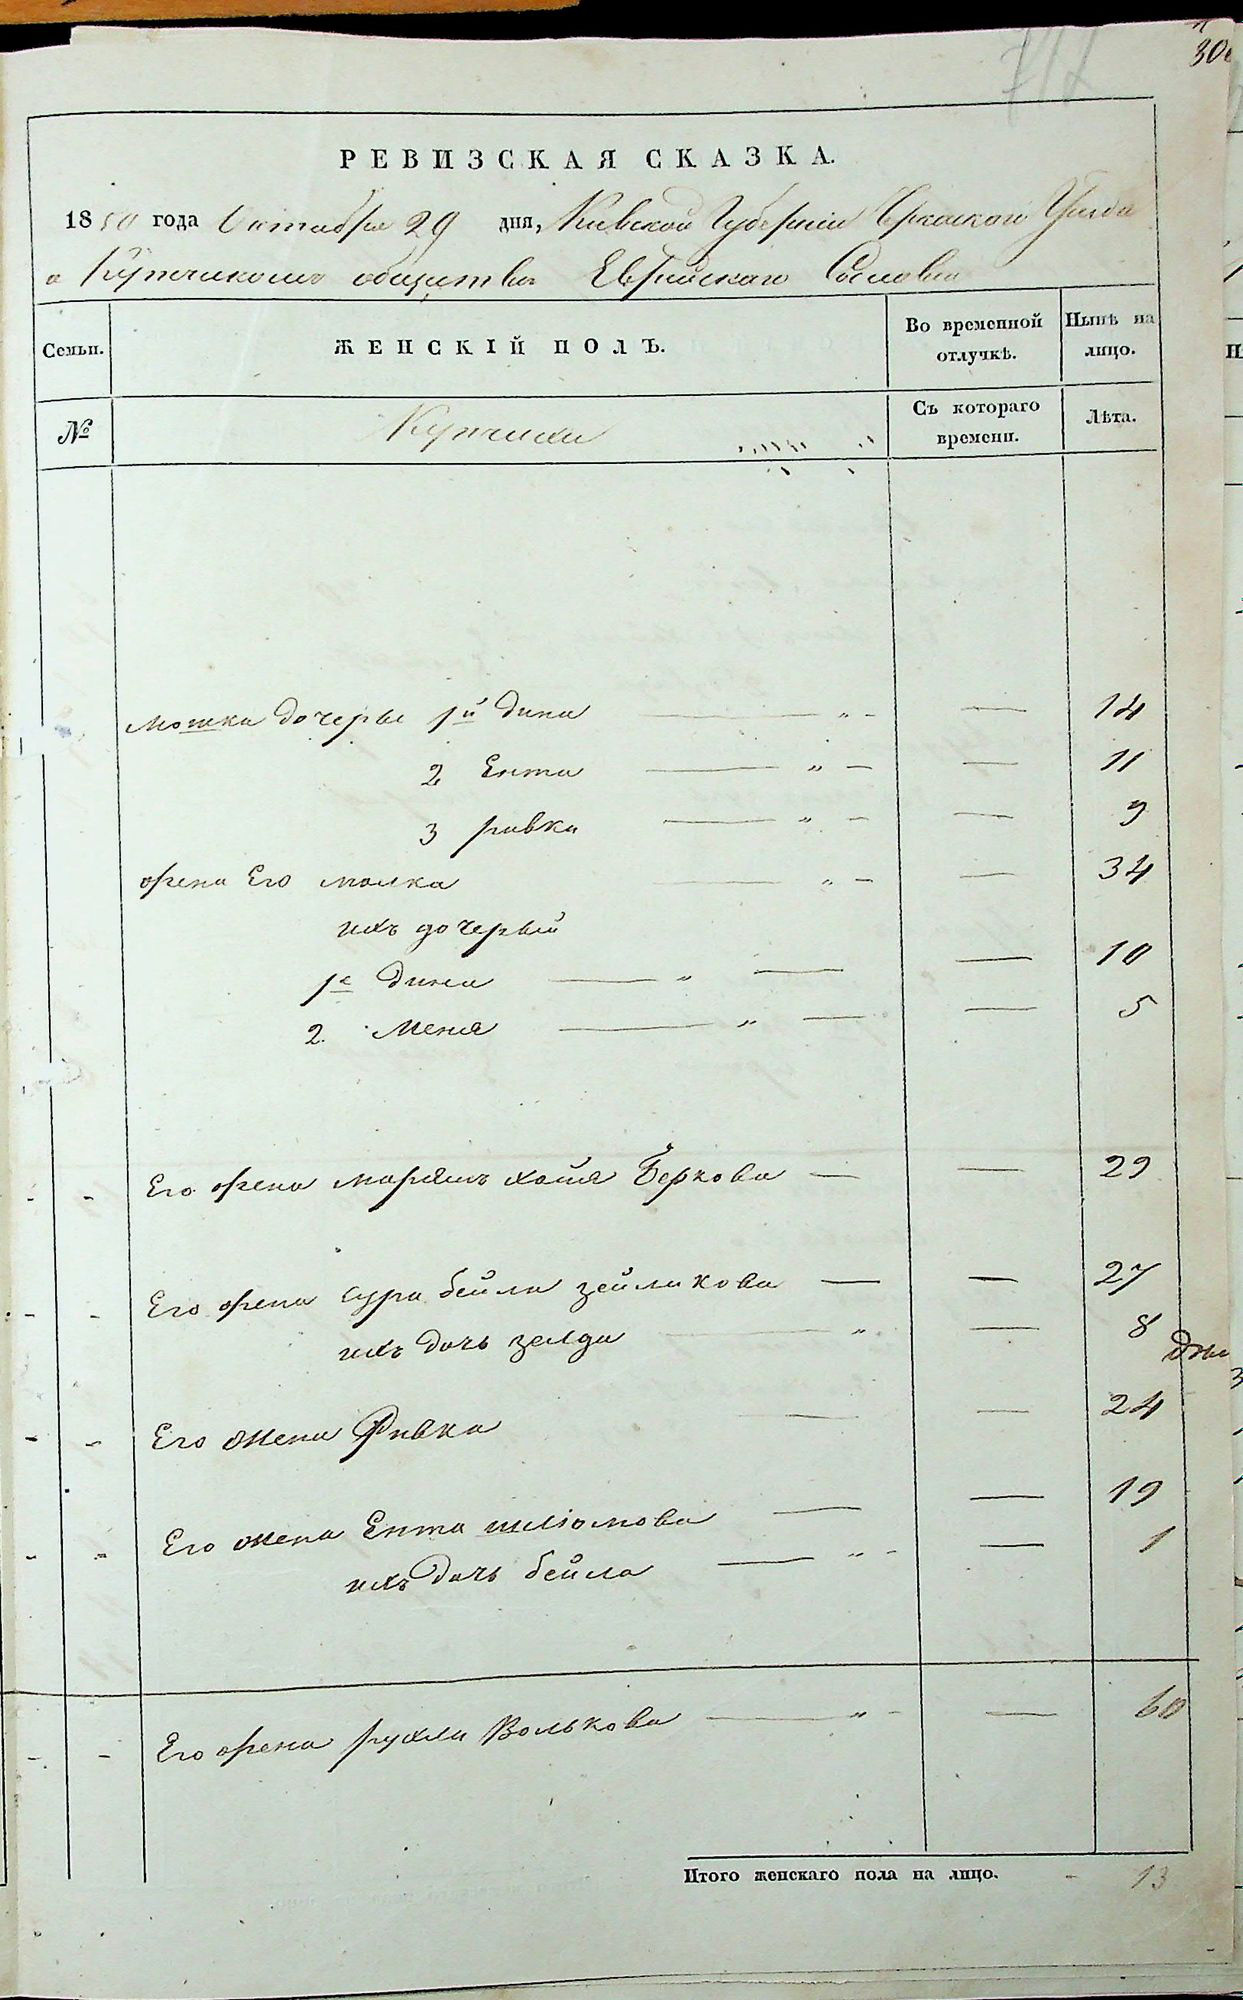 30
РЕВИЗСКАЯ СКАЗКА.
1850 года Октября 29 дня, Киевской Губерніи Черкаскаго Уезда
о Купеческомъ обществе Еврейскаго Сословія
Семьи.
ЖЕНСКІЙ ПОЛЪ.
Во временной отлучкѣ.
Нынѣ на лицо.
№
Купчихи
Съ котораго времени.
Лѣта.
Мошка дочерье 1й Дина — " — — 14
2 Ента — " — — 11
3 ривка — " — — 9
жена Его малка — " — — 34
ихъ дочерьй
1е Дина — " — — 10
2. Меня — " — — 5
Его жена марямъ хаия Беркова — — 29
Его жена сура бейла зейликова — — 27
ихъ дочь зелда — " — 8 дне
Его жена Ривка — — 24
Его жена Ента шліомова — — 19
ихъ дочь бейла — " — — 1
Его жена рухля Волькова — " — — 60
Итого женскаго пола на лицо. - 13